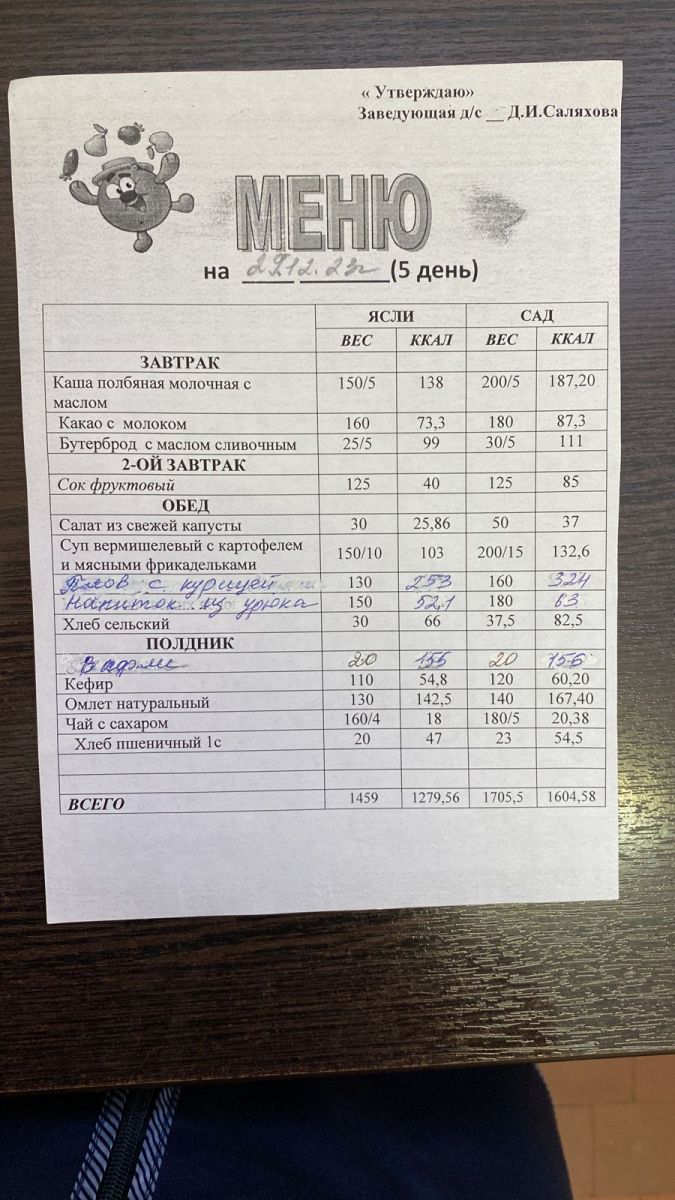 « Утверждаю»
Заведующая д/с __ Д.И.Саляхова
МЕНЮ
на 29.12.23г (5 день)
ЯСЛИ САД
ВЕС ККАЛ ВЕС ККАЛ
ЗАВТРАК
Каша полбяная молочная с 150/5 138 200/5 187,20
маслом
Какао с молоком 160 73,3 180 87,3
Бутерброд с маслом сливочным 25/5 99 30/5 111
2-ОЙ ЗАВТРАК
Сок фруктовый 125 40 125 85
ОБЕД
Салат из свежей капусты 30 25,86 50 37
Суп вермишелевый с картофелем 150/10 103 200/15 132,6
и мясными фрикадельками
Плов с курицей 130 253 160 324
Напиток из урюка 150 52,1 180 63
Хлеб сельский 30 66 37,5 82,5
ПОЛДНИК
Вафли 20 155 20 155
Кефир 110 54,8 120 60,20
Омлет натуральный 130 142,5 140 167,40
Чай с сахаром 160/4 18 180/5 20,38
Хлеб пшеничный 1с 20 47 23 54,5
ВСЕГО 1459 1279,56 1705,5 1604,58